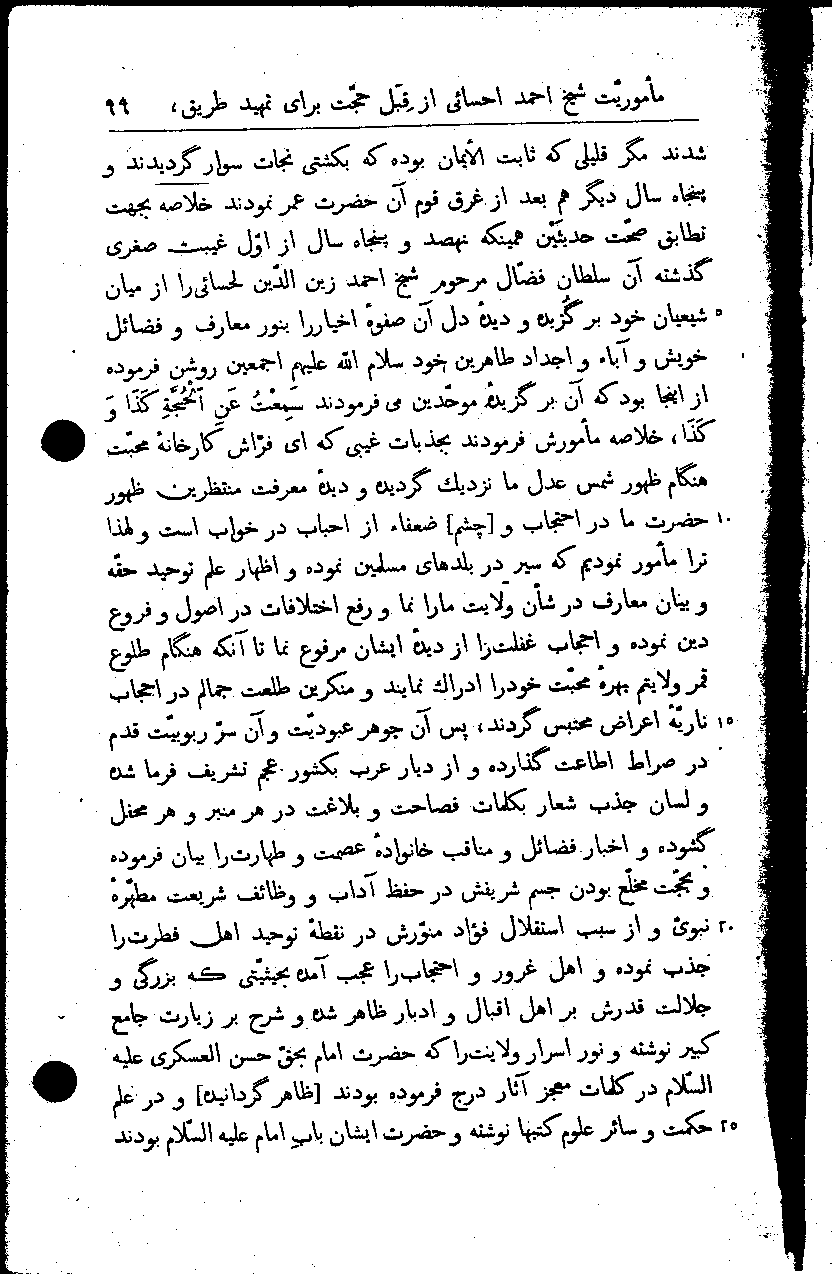 مأموریّت شیخ احمد احسائی از قِبَل حجّت برای تمهید طریق، ۹۹
شدند مگر قلیلی که ثابت الأیمان بوده که بکشتی نجات سوار گردیدند و
پنجاه سال دیگر هم بعد از غرق قوم آن حضرت عمر نمودند خلاصه بجهت
تطابق صحّت حدیثَیْن همینکه نهصد و پنجاه سال از اوّل غیبت صغری
گذشته آن سلطان فضّال مرحوم شیخ احمد زین الدّین لحسائی‌را از میان
۵ شیعیان خود بر گُزیده و دیدهٔ دل آن صفوهٔ اخیاررا بنور معارف و فضائل
خویش و آباء و اجداد طاهرین خود سلام الله علیهم اجمعین روشن فرموده
از اینجا بود که آن بر گزیدهٔ موحّدین می فرمودند سَمِعْتُ عَنِ اَلْحُجَّةِ کَذَا وَ
کَذَا، خلاصه مأمورش فرمودند بجذبات غیبی که ای فرّاش کارخانهٔ محبّت
هنگام ظهور شمس عدل ما نزدیك گردیده و دیدهٔ معرفت منتظرین ظهور
۱۰ حضرت ما در احتجاب و [چشم] ضعفاء از احباب در خواب است و لهذا
ترا مأمور نمودیم که سیر در بلدهای مسلمین نموده و اظهار علم توحید حقّه
و بیان معارف در شأن ولایت مارا نما و رفع اختلافات در اصول و فروع
دین نموده و احجاب غفلت‌را از دیدهٔ ایشان مرفوع نما تا آنکه هنگام طلوع
قمر ولایتم بهرهٔ محبّت خودرا ادراك نمایند و منکرین طلعت جمالم در احجاب
۱۵ ناریّهٔ اعراض محتبس گردند، پس آن جوهر عبودیّت و آن سرّ ربوبیّت قدم
در صراط اطاعت گذارده و از دیار عرب بکشور عجم تشریف فرما شده
و لسان جذب شعار بکلمات فصاحت و بلاغت در هر منبر و هر محفل
گشوده و اخبار فضائل و مناقب خانوادهٔ عصمت و طهارت‌را بیان فرموده
و بحجّت مخلّع بودن جسم شریفش در حفظ آداب و وظائف شریعت مطهّرهٔ
۲۰ نبوی و از سبب استقلال فؤاد منوّرش در نقطهٔ توحید اهل فطرت‌را
جذب نموده و اهل غرور و احتجاب‌را عجب آمده بحیثیّتی که بزرگی و
جلالت قدرش بر اهل اقبال و ادبار ظاهر شده و شرح بر زیارت جامع
کبیر نوشته و نور اسرار ولایت‌را که حضرت امام بحقّ حسن العسکری علیه
السّلام در کلمات معجز آثار درج فرموده بودند [ظاهر گردانیده] و در علم
۲۵ حکمت و سائر علوم کتبها نوشته و حضرت ایشان بابِ امام علیه السّلام بودند